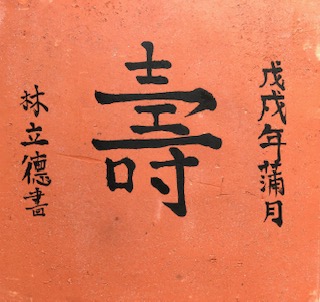 戊戌年蒲月
壽
林立德書